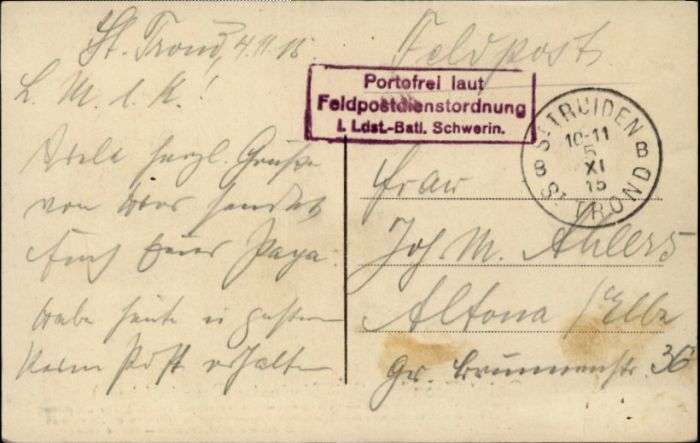 St. Trond, 4.11.15
Feldpost
L. M. l. K.!
Portofrei laut
Feldpostdienstordnung
I. Ldst.-Batl. Schwerin.
ST TRUIDEN
10-11
5
XI
15
B B
ST TROND
Viele herzl. Grüße
von hier sendet
Euch Euer Papa.
Habe heute u gestern
keine Post erhalten
Frau
Joh M. Ahlers
Altona /Elbe
Gr. Brunnenstr. 36